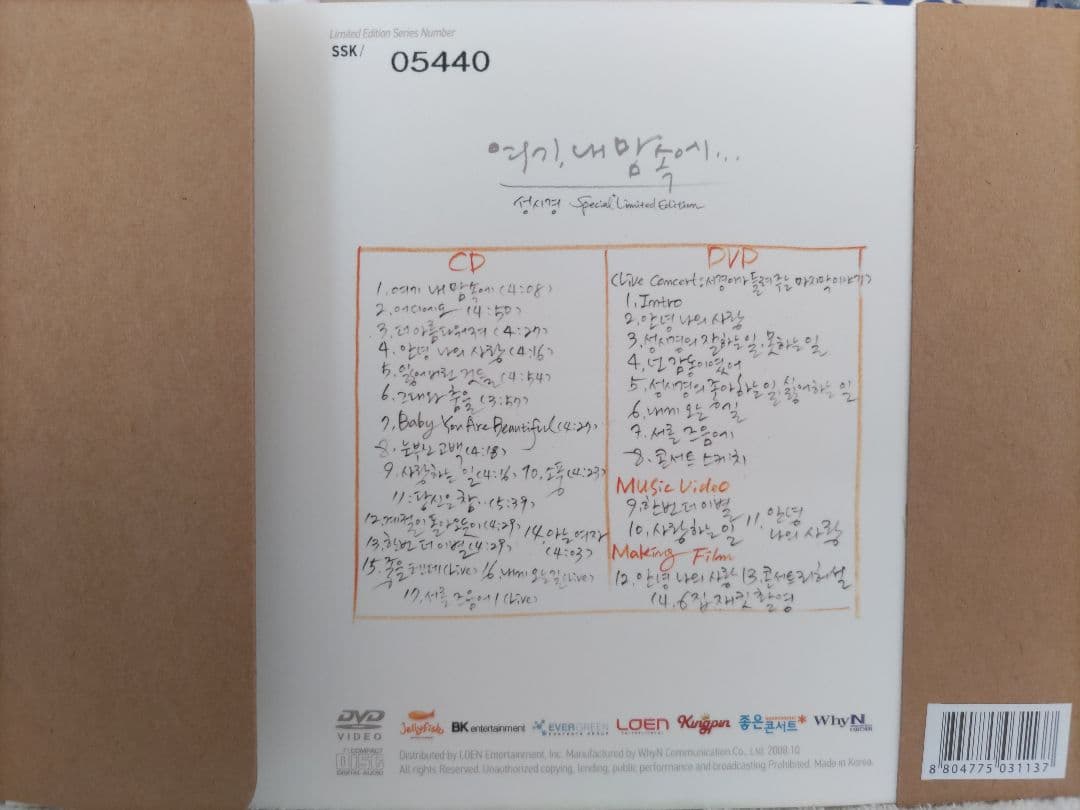 Limited Edition Series Number
SSK/ 05440
여기, 내 맘 속에...
성시경 Special Limited Edition
CD
1. 여기 내 맘 속에 (4:08)
2. 어디에요 (4:50)
3. 더 아름다워져 (4:27)
4. 안녕 나의 사랑 (4:16)
5. 잃어버린 것들 (4:54)
6. 그대와 춤을 (3:57)
7. Baby You Are Beautiful (4:27)
8. 눈부신 고백 (4:18)
9. 사랑하는 일 (4:16) 10. 소풍 (4:23)
11. 당신은 참.. (5:39)
12. 계절이 돌아오듯이 (4:29)
13. 한번 더 이별 (4:29) 14. 아는 여자 (4:03)
15. 좋을텐데 (Live) 16. 내게 오는 길 (Live)
17. 서른 즈음에 (Live)
DVD
(Live Concert : 시경이가 들려주는 마지막 이야기)
1. Intro
2. 안녕 나의 사랑
3. 성시경의 잘하는 일, 못하는 일
4. 넌 감동이었어
5. 성시경의 좋아하는 일, 싫어하는 일
6. 내게 오는 길
7. 서른 즈음에
8. 콘서트 스케치
Music Video
9. 한번 더 이별
10. 사랑하는 일 11. 안녕 나의 사랑
Making Film
12. 안녕 나의 사랑 13. 콘서트 리허설
14. 6집 재킷 촬영
DVD VIDEO Jellyfish BK entertainment EVERGREEN LOEN Kingpin 좋은콘서트* WhyN
COMPACT disc DIGITAL AUDIO
Distributed by LOEN Entertainment, Inc. Manufactured by WhyN Communication Co., Ltd. 2008.10
All rights Reserved. Unauthorized copying, lending, public performance and broadcasting Prohibited. Made in Korea.
8 804775 031137